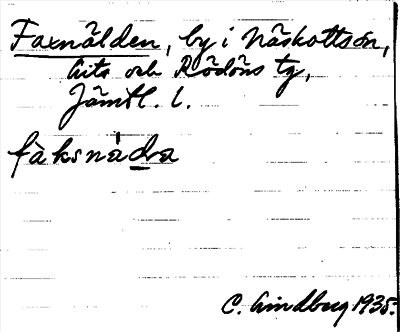 Faxnälden, by i Näskottssn,
Lits och Rödöns tg,
Jämtl. l.
fàksnádra
C. Lindberg 1935.